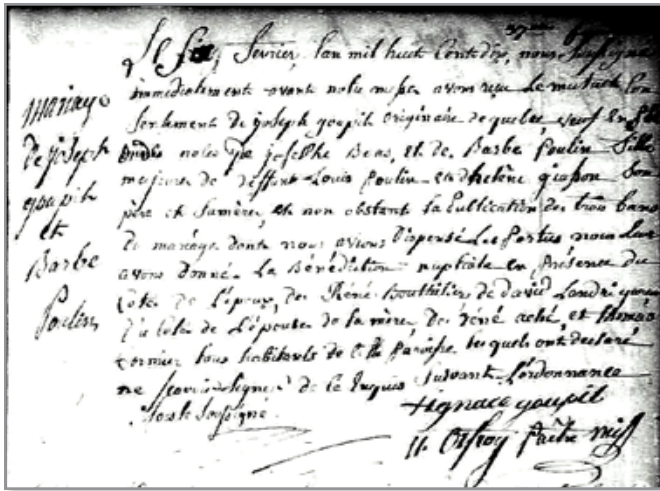 fevrier, l'an mil huit cent dix, nous soussigné
immédiatement avant notre messe avons reçu le mutuel con
sentement de joseph goupil originaire de quebec, veuf en
noces de josephe Beas, et de Barbe Poulin fille
majeure de deffunt Louis Poulin et d'helène son
père et sa mère, et non obstant la publication des trois bans
de mariage dont nous avions Dispensé les Parties nous leur
avons donné la Bénédiction nuptiale en Présence du
Côté de L'époux, de René Bouthilier de david Landri
du Côté de L'épouse de sa mère, de réné aché, et thomas
cormier tous habitants de Paroisse lesquels ont declaré
ne savoir signer de ce requis suivant L'ordonnance
soussigné.
mariage
de joseph
goupil
et
Barbe
Poulin
+ignace goupil
Orfroy Prêtre miss